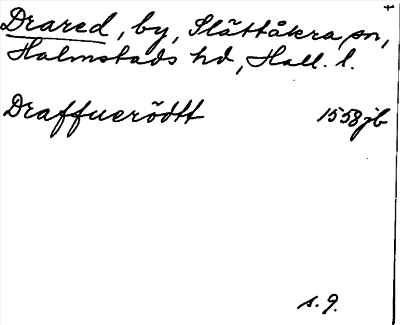 Drared, by, Slättåkra sn,
Halmstads hd, Hall. l.
Draffuerödtt 1558 jb
s. 9.